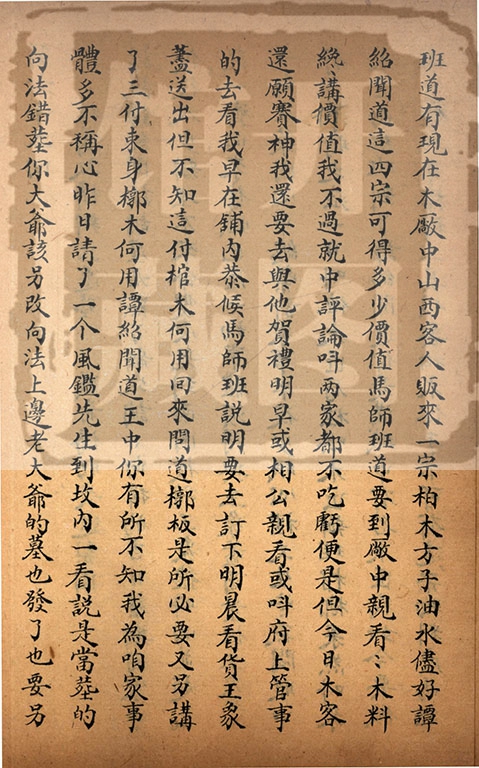 班道有現在木廠中山西客人販來一宗柏木方子油水儘好譚
紹聞道這四宗可得多少價值馬師班道要到廠中親看〻木料
纔講價值我不過就中評論呌两家都不吃虧便是但今日木客
還願賽神我還要去與他賀禮明早或相公親看或呌府上管事
的去看我早在鋪內恭候馬師班説明要去訂下明晨看貨王象
藎送出但不知這付棺木何用回來問道槨板是所必要又另講
了三付束身槨木何用譚紹聞道王中你有所不知我為咱家事
體多不稱心昨日請了一个風鑑先生到坟內一看説是當塟的
向法錯塟你大爺該另改向法上邊老大爺的墓也發了也要另